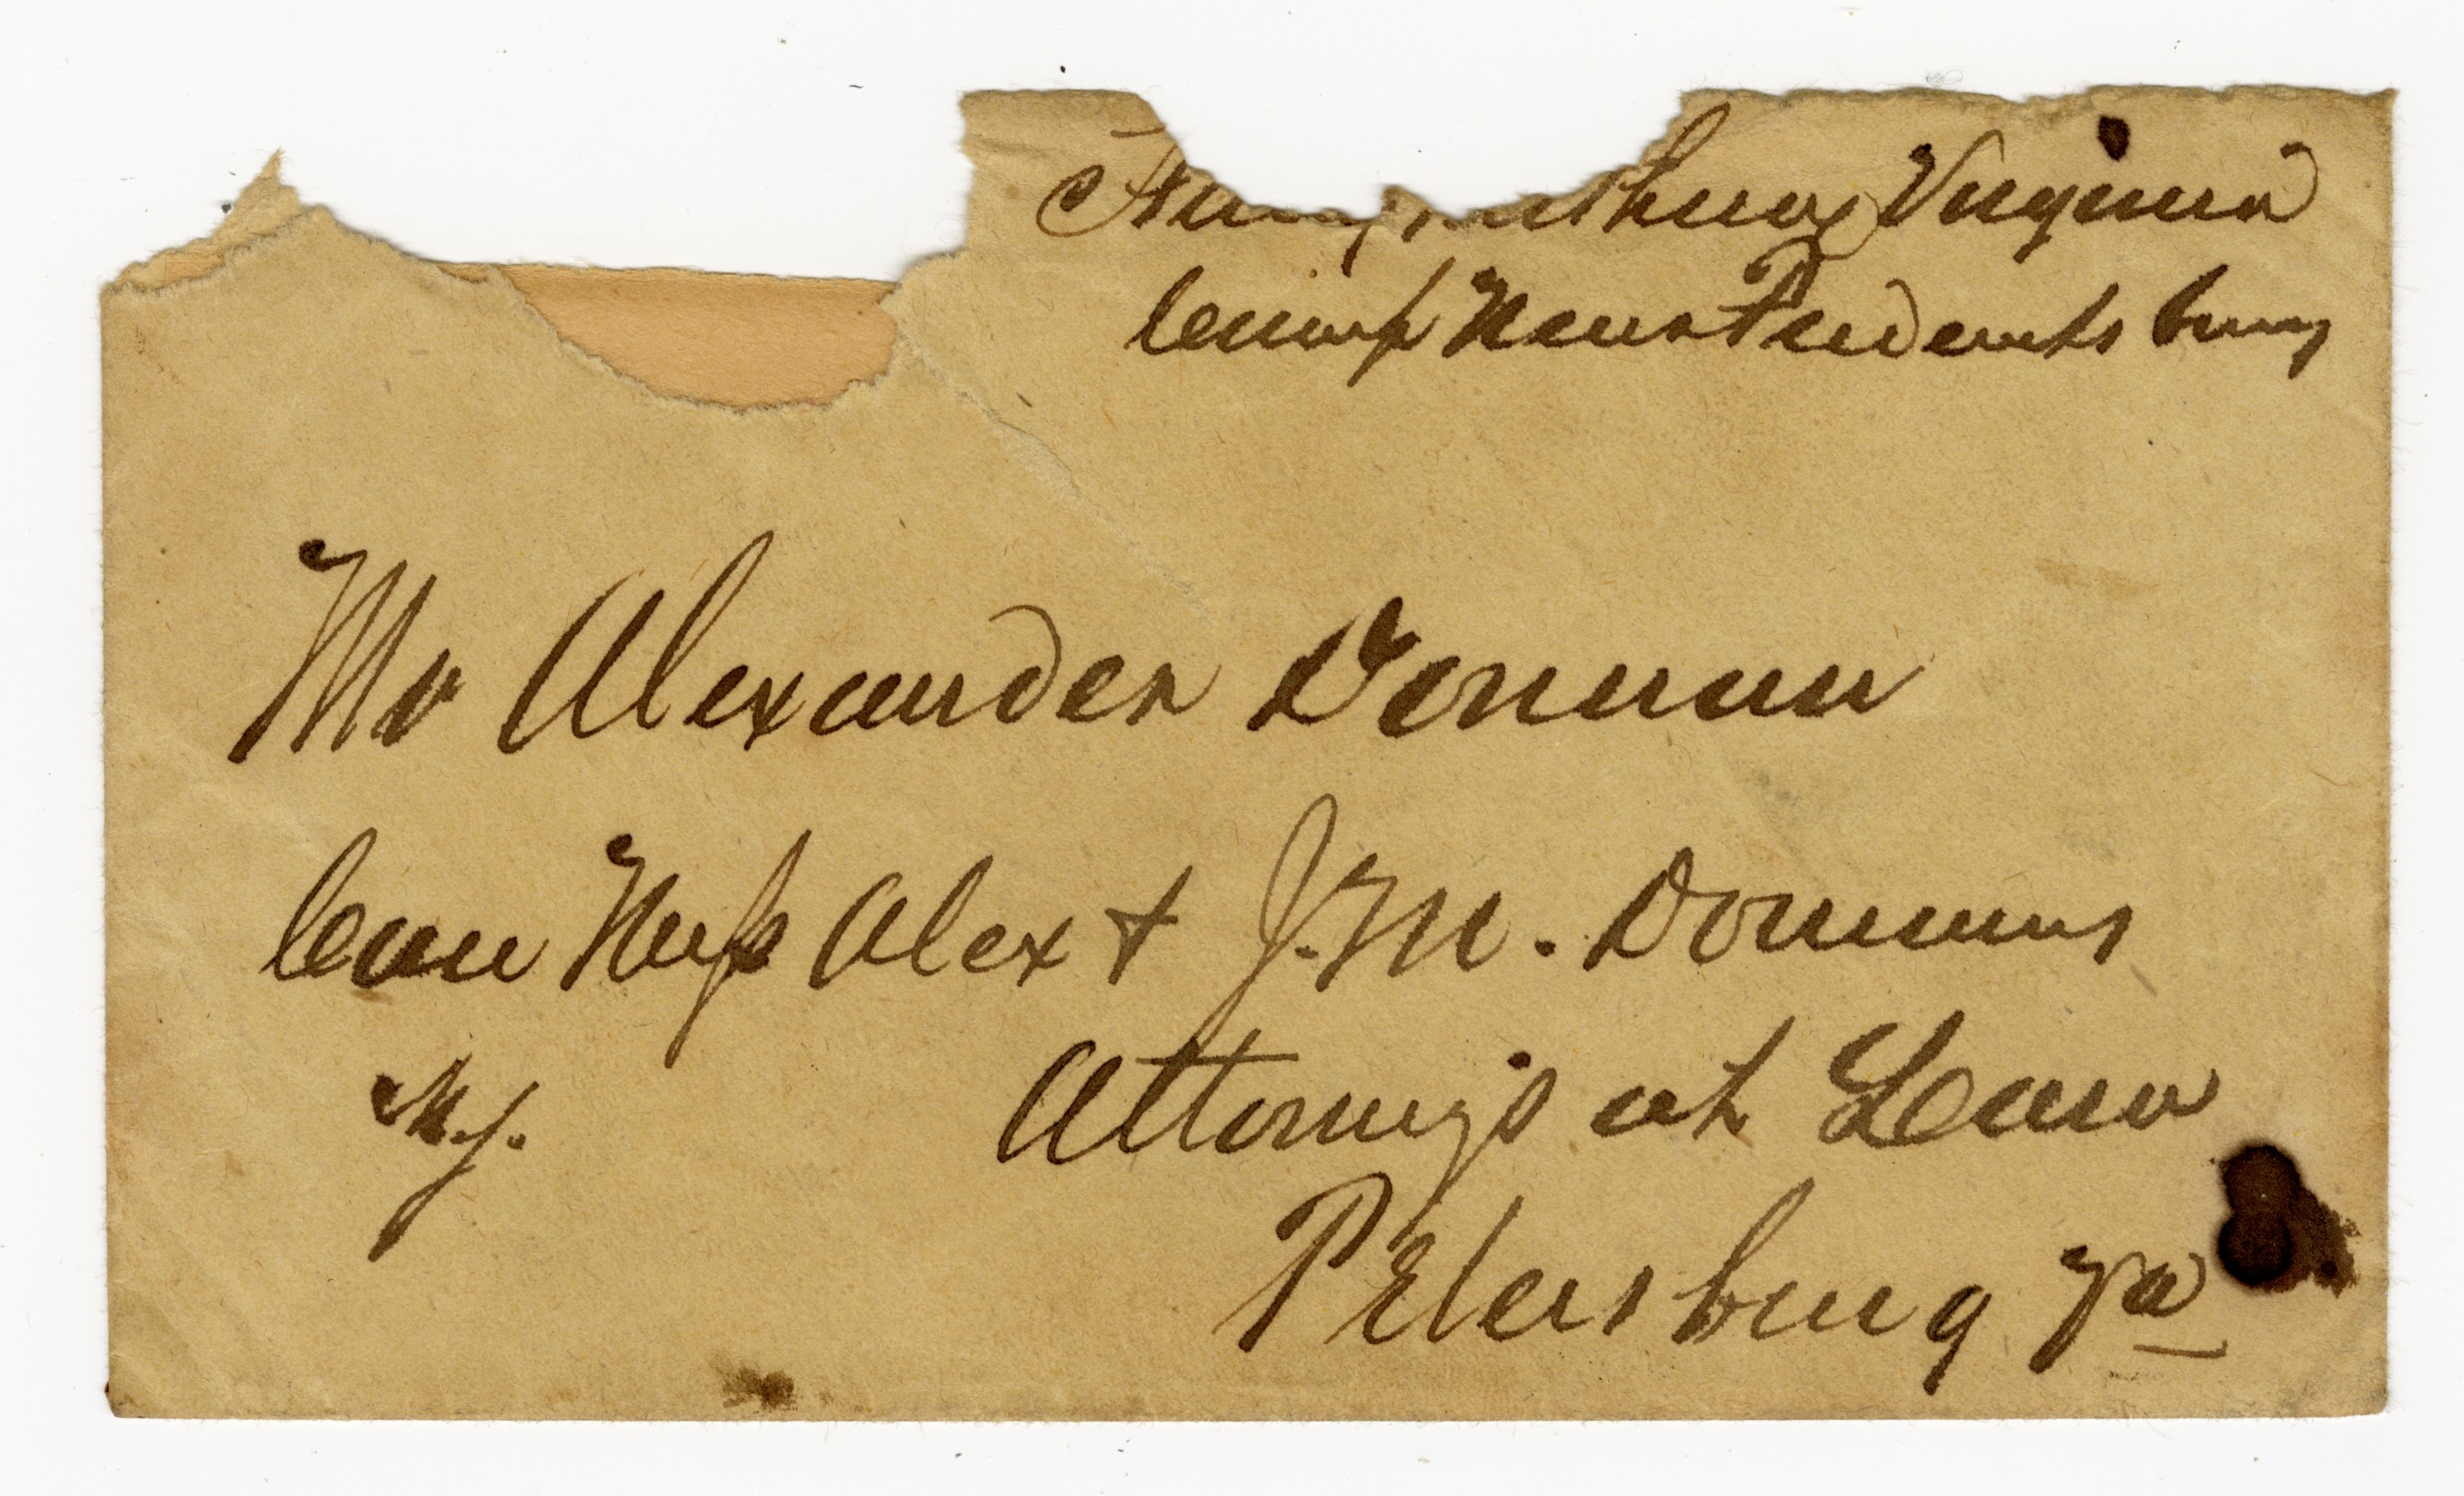 Virginia
Camp Near Fredericksburg
Mr Alexander Donnan
Care Messrs Alex & J. M. Donnans
Attorneys at Law
Petersburg Va